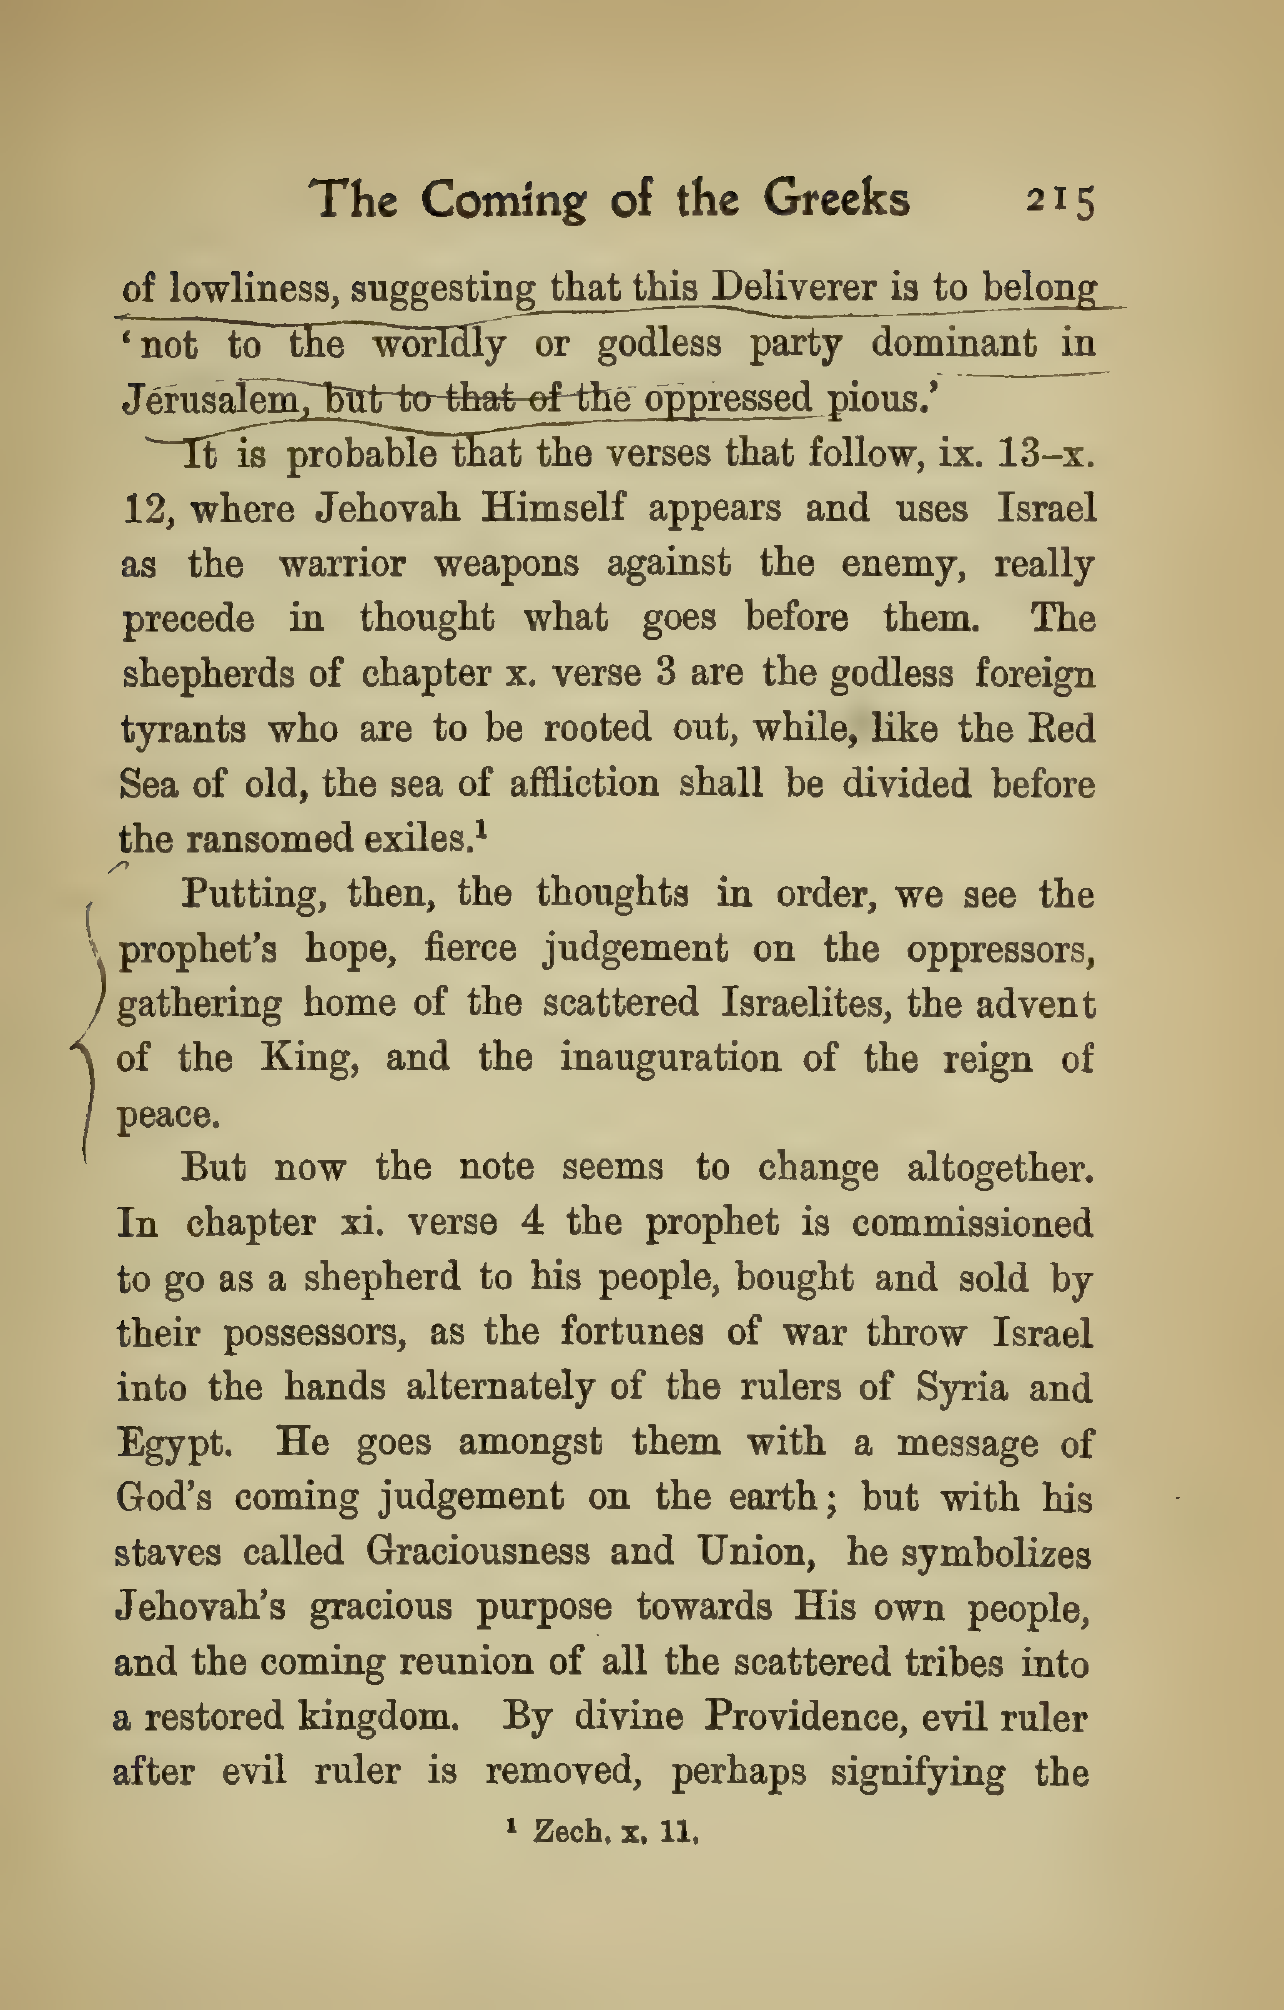 The Coming of the Greeks 215
of lowliness, suggesting that this Deliverer is to belong
‘not to the worldly or godless party dominant in
Jerusalem, but to that of the oppressed pious.’
It is probable that the verses that follow, ix. 13–x.
12, where Jehovah Himself appears and uses Israel
as the warrior weapons against the enemy, really
precede in thought what goes before them. The
shepherds of chapter x. verse 3 are the godless foreign
tyrants who are to be rooted out, while, like the Red
Sea of old, the sea of affliction shall be divided before
the ransomed exiles.¹
Putting, then, the thoughts in order, we see the
prophet’s hope, fierce judgement on the oppressors,
gathering home of the scattered Israelites, the advent
of the King, and the inauguration of the reign of
peace.
But now the note seems to change altogether.
In chapter xi. verse 4 the prophet is commissioned
to go as a shepherd to his people, bought and sold by
their possessors, as the fortunes of war throw Israel
into the hands alternately of the rulers of Syria and
Egypt. He goes amongst them with a message of
God’s coming judgement on the earth; but with his
staves called Graciousness and Union, he symbolizes
Jehovah’s gracious purpose towards His own people,
and the coming reunion of all the scattered tribes into
a restored kingdom. By divine Providence, evil ruler
after evil ruler is removed, perhaps signifying the
¹ Zech. x. 11.